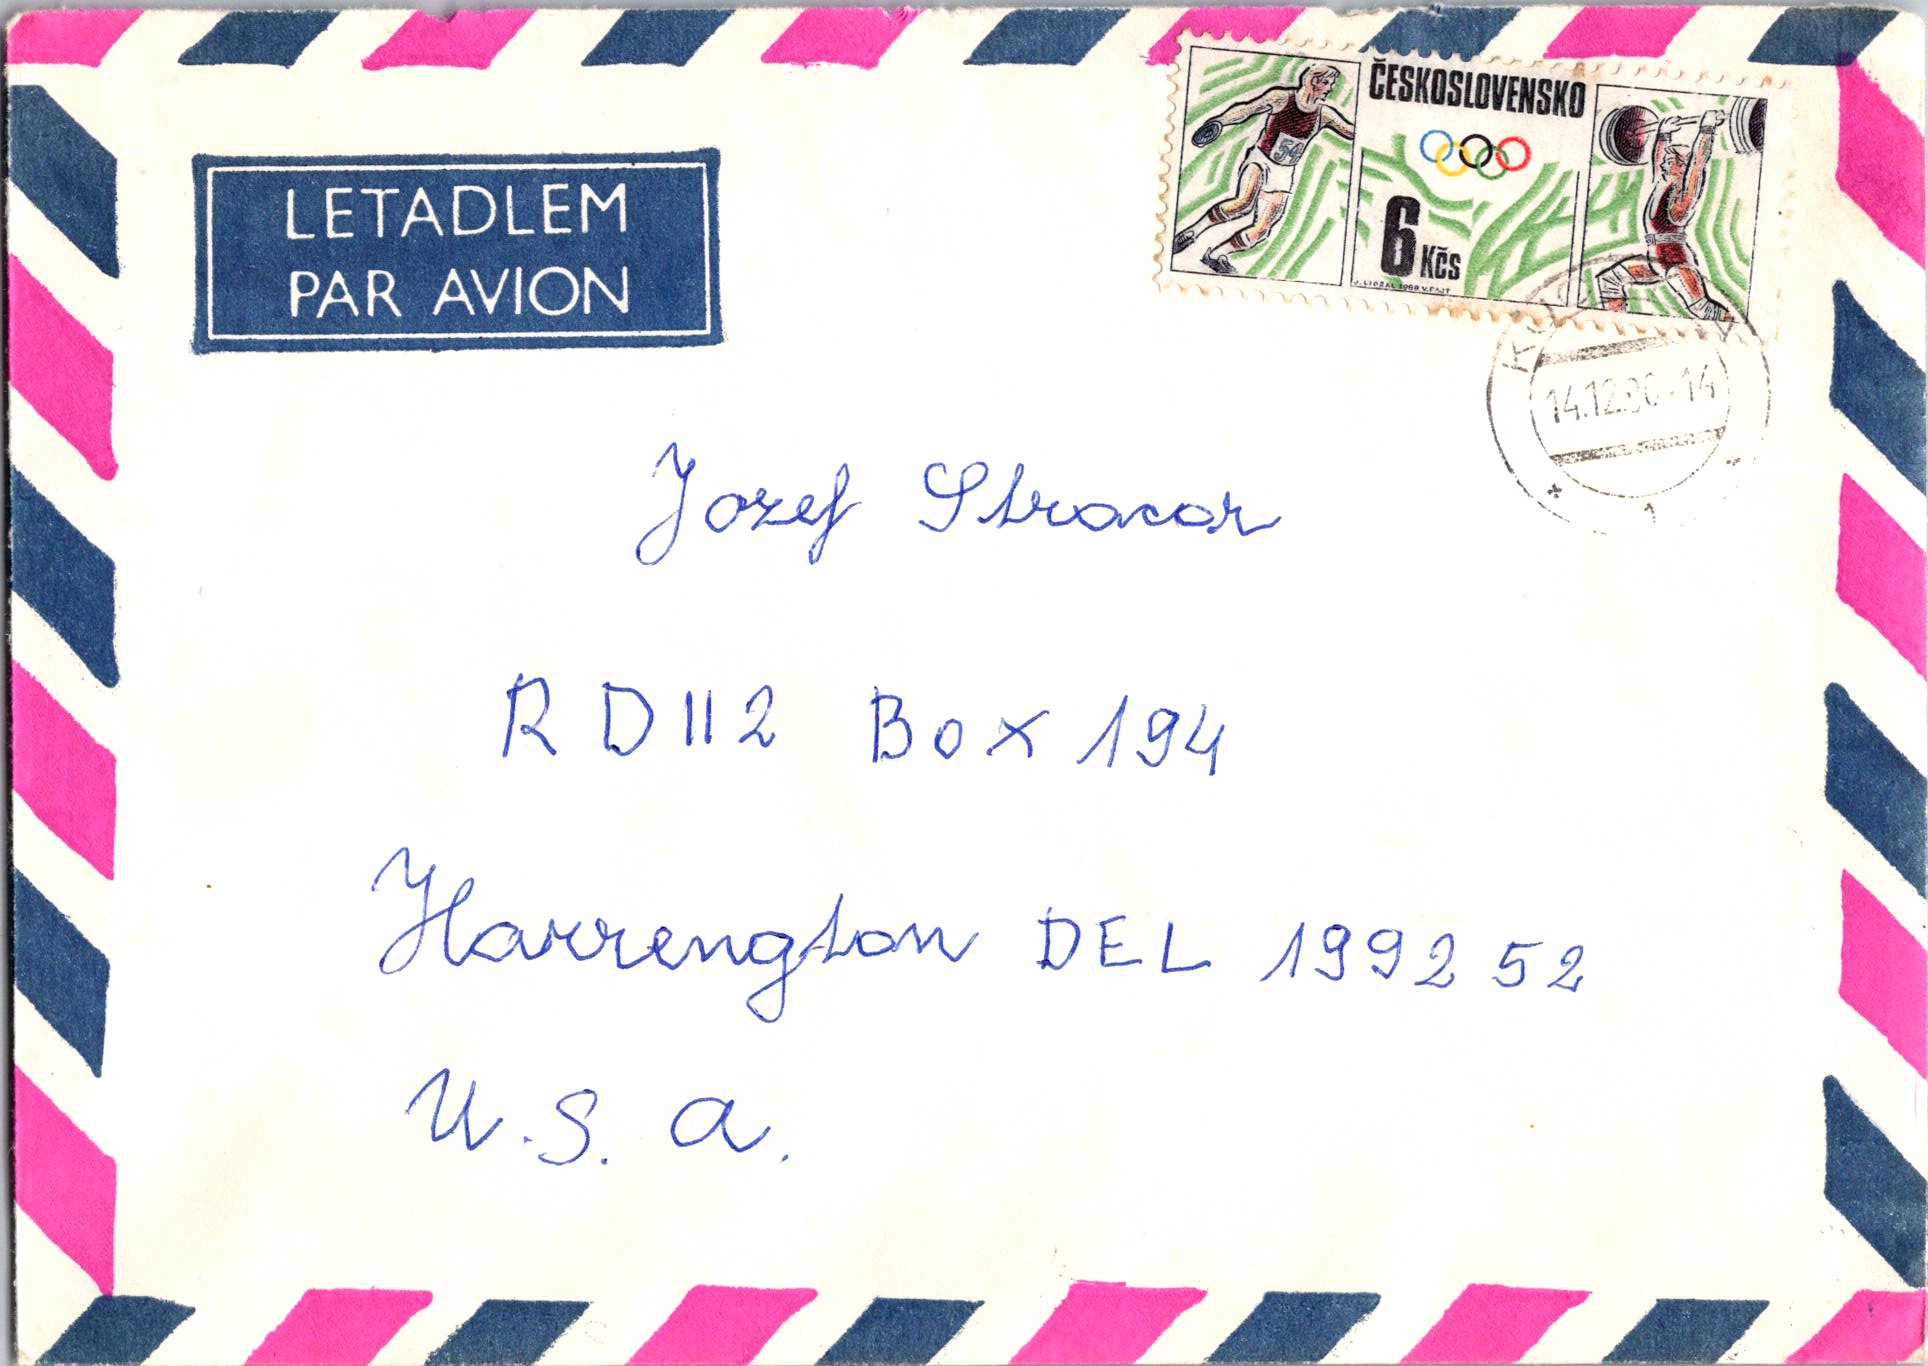 LETADLEM
PAR AVION
54
ČESKOSLOVENSKO
6 Kčs
J. LIESLER 1988 V. FAJT
14.12.90-14
1
Jozef Stracar
R D 112 Box 194
Harrengton DEL 1992 52
U.S.A.